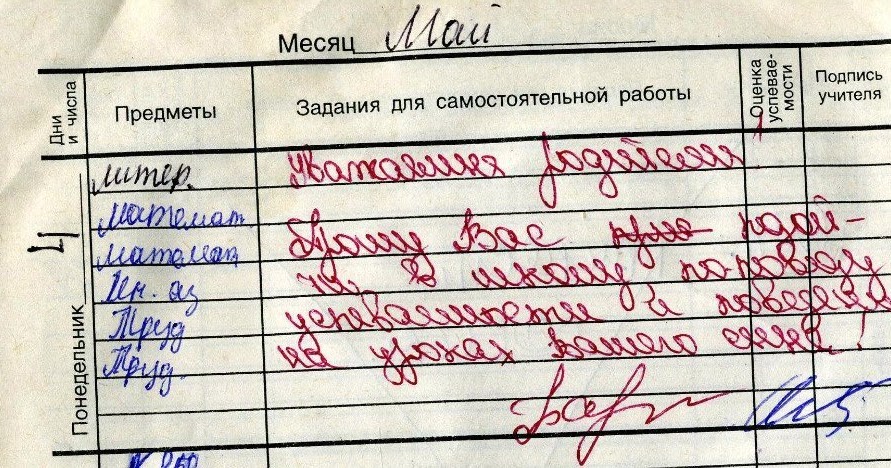 Месяц Май
Дни и числа
Предметы
Задания для самостоятельной работы
Оценка успевае-мости
Подпись учителя
Понедельник
4
литер.
Математ.
Математ
Ин. яз
Труд
Труд.
Уважаемые родители!
Прошу Вас подой-
ти в школу по поводу
успеваемости и поведения
на уроках вашего сына!